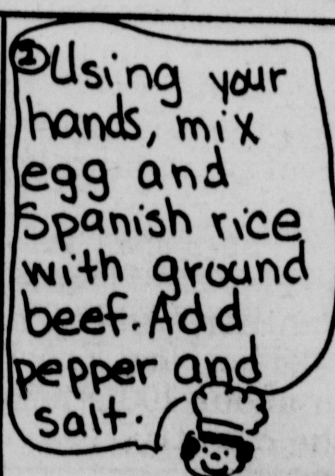 ② Using your
hands, mix
egg and
Spanish rice
with ground
beef. Add
pepper and
salt.